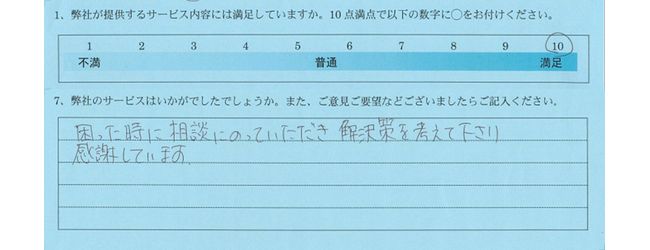 1、弊社が提供するサービス内容には満足していますか。10点満点で以下の数字に○をお付けください。
1 2 3 4 5 6 7 8 9 10
不満 普通 満足
7、弊社のサービスはいかがでしたでしょうか。また、ご意見ご要望などございましたらご記入ください。
困った時に相談にのっていただき解決策を考えて下さり
感謝しています。